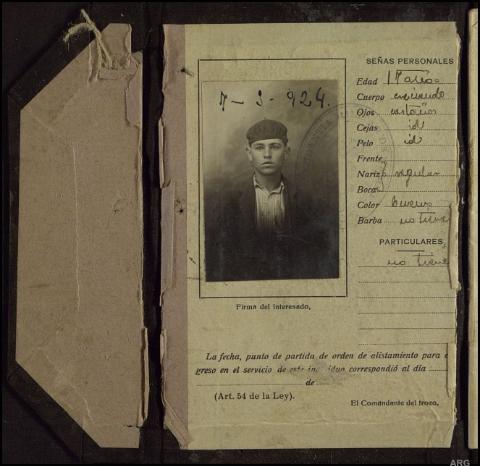 SEÑAS PERSONALES
Edad 17 años
Cuerpo
Ojos castaños
Cejas id
Pelo id
Frente
Nariz regular
Boca
Color bueno
Barba no tiene
PARTICULARES
no tiene
7-3-924.
Firma del interesado,
La fecha, punto de partida de orden de alistamiento para e
greso en el servicio de este individuo correspondió al día
de
(Art. 54 de la Ley).
El Comandante del trozo,
ARG